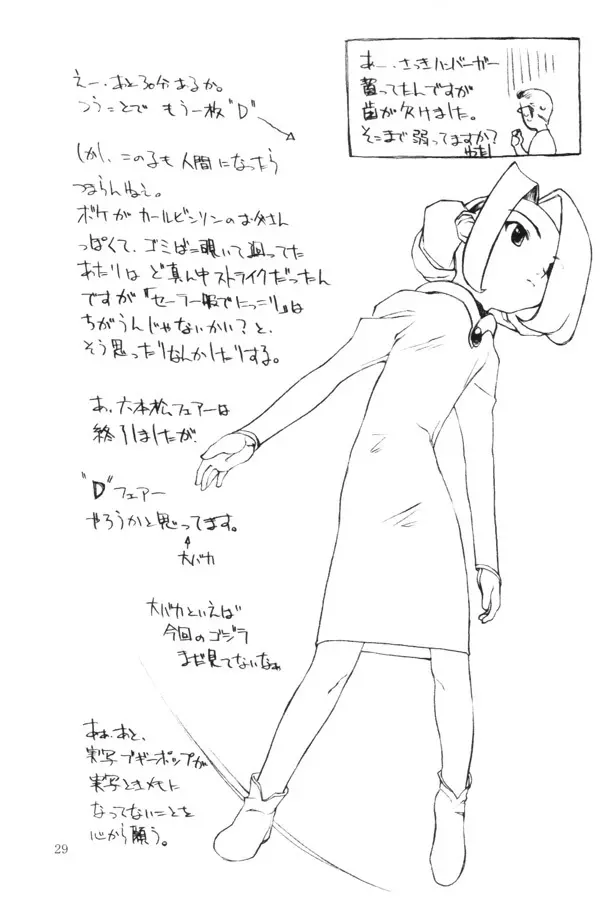 えー、あと30分あるか。
つうことで もう一枚"D"
しかし、この子も人間になったら
つまらんねぇ。
ボケがカールビンソンのお父さん
っぽくて、ゴミばこ覗いて回ってた
あたりは ど真ん中ストライクだったん
ですが「セーラー服でにっこり」は
ちがうんじゃないかい?と、
そう思ったりなんかしたりする。
あ、六本松フェアーは
終了しましたが
"D"フェアー
やろうかと思ってます。
大バカ
大バカといえば
今回のゴジラ
まだ見てないなぁ
あぁ、あと、
実写ブギーポップが
実写ときメモに
なってないことを
心から願う。
あー、さっきハンバーガー
食ってたんですが
歯が欠けました。
そこまで弱ってますか?
わたし
29